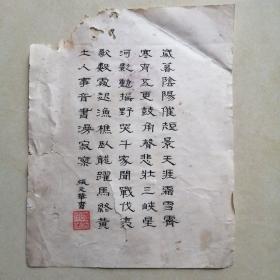 歲暮陰陽催短景天涯霜雪霽
寒宵五更鼓角聲悲壯三峽星
河影動搖野哭千家聞戰伐夷
歌數處起漁樵臥龍躍馬終黃
土人事音書漫寂寥
華書